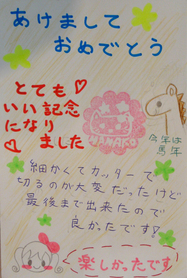 あけまして
おめでとう
とても
いい記念
になり
ました
NANAKO
今年は
馬年
細かくてカッターで
切るのが大変だったけど
最後まで出来たので
良かったです!
楽しかったです